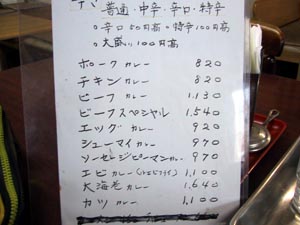 普通・中辛・辛口・特辛
○辛口50円高 ○特辛100円高
○大盛り100円高
ポークカレー 820
チキンカレー 820
ビーフカレー 1.130
ビーフスペシャル 1.540
エッグカレー 920
シューマイカレー 970
ソーセージピーマンカレー 970
エビカレー 1.100
大海老カレー 1.640
カツカレー 1.100